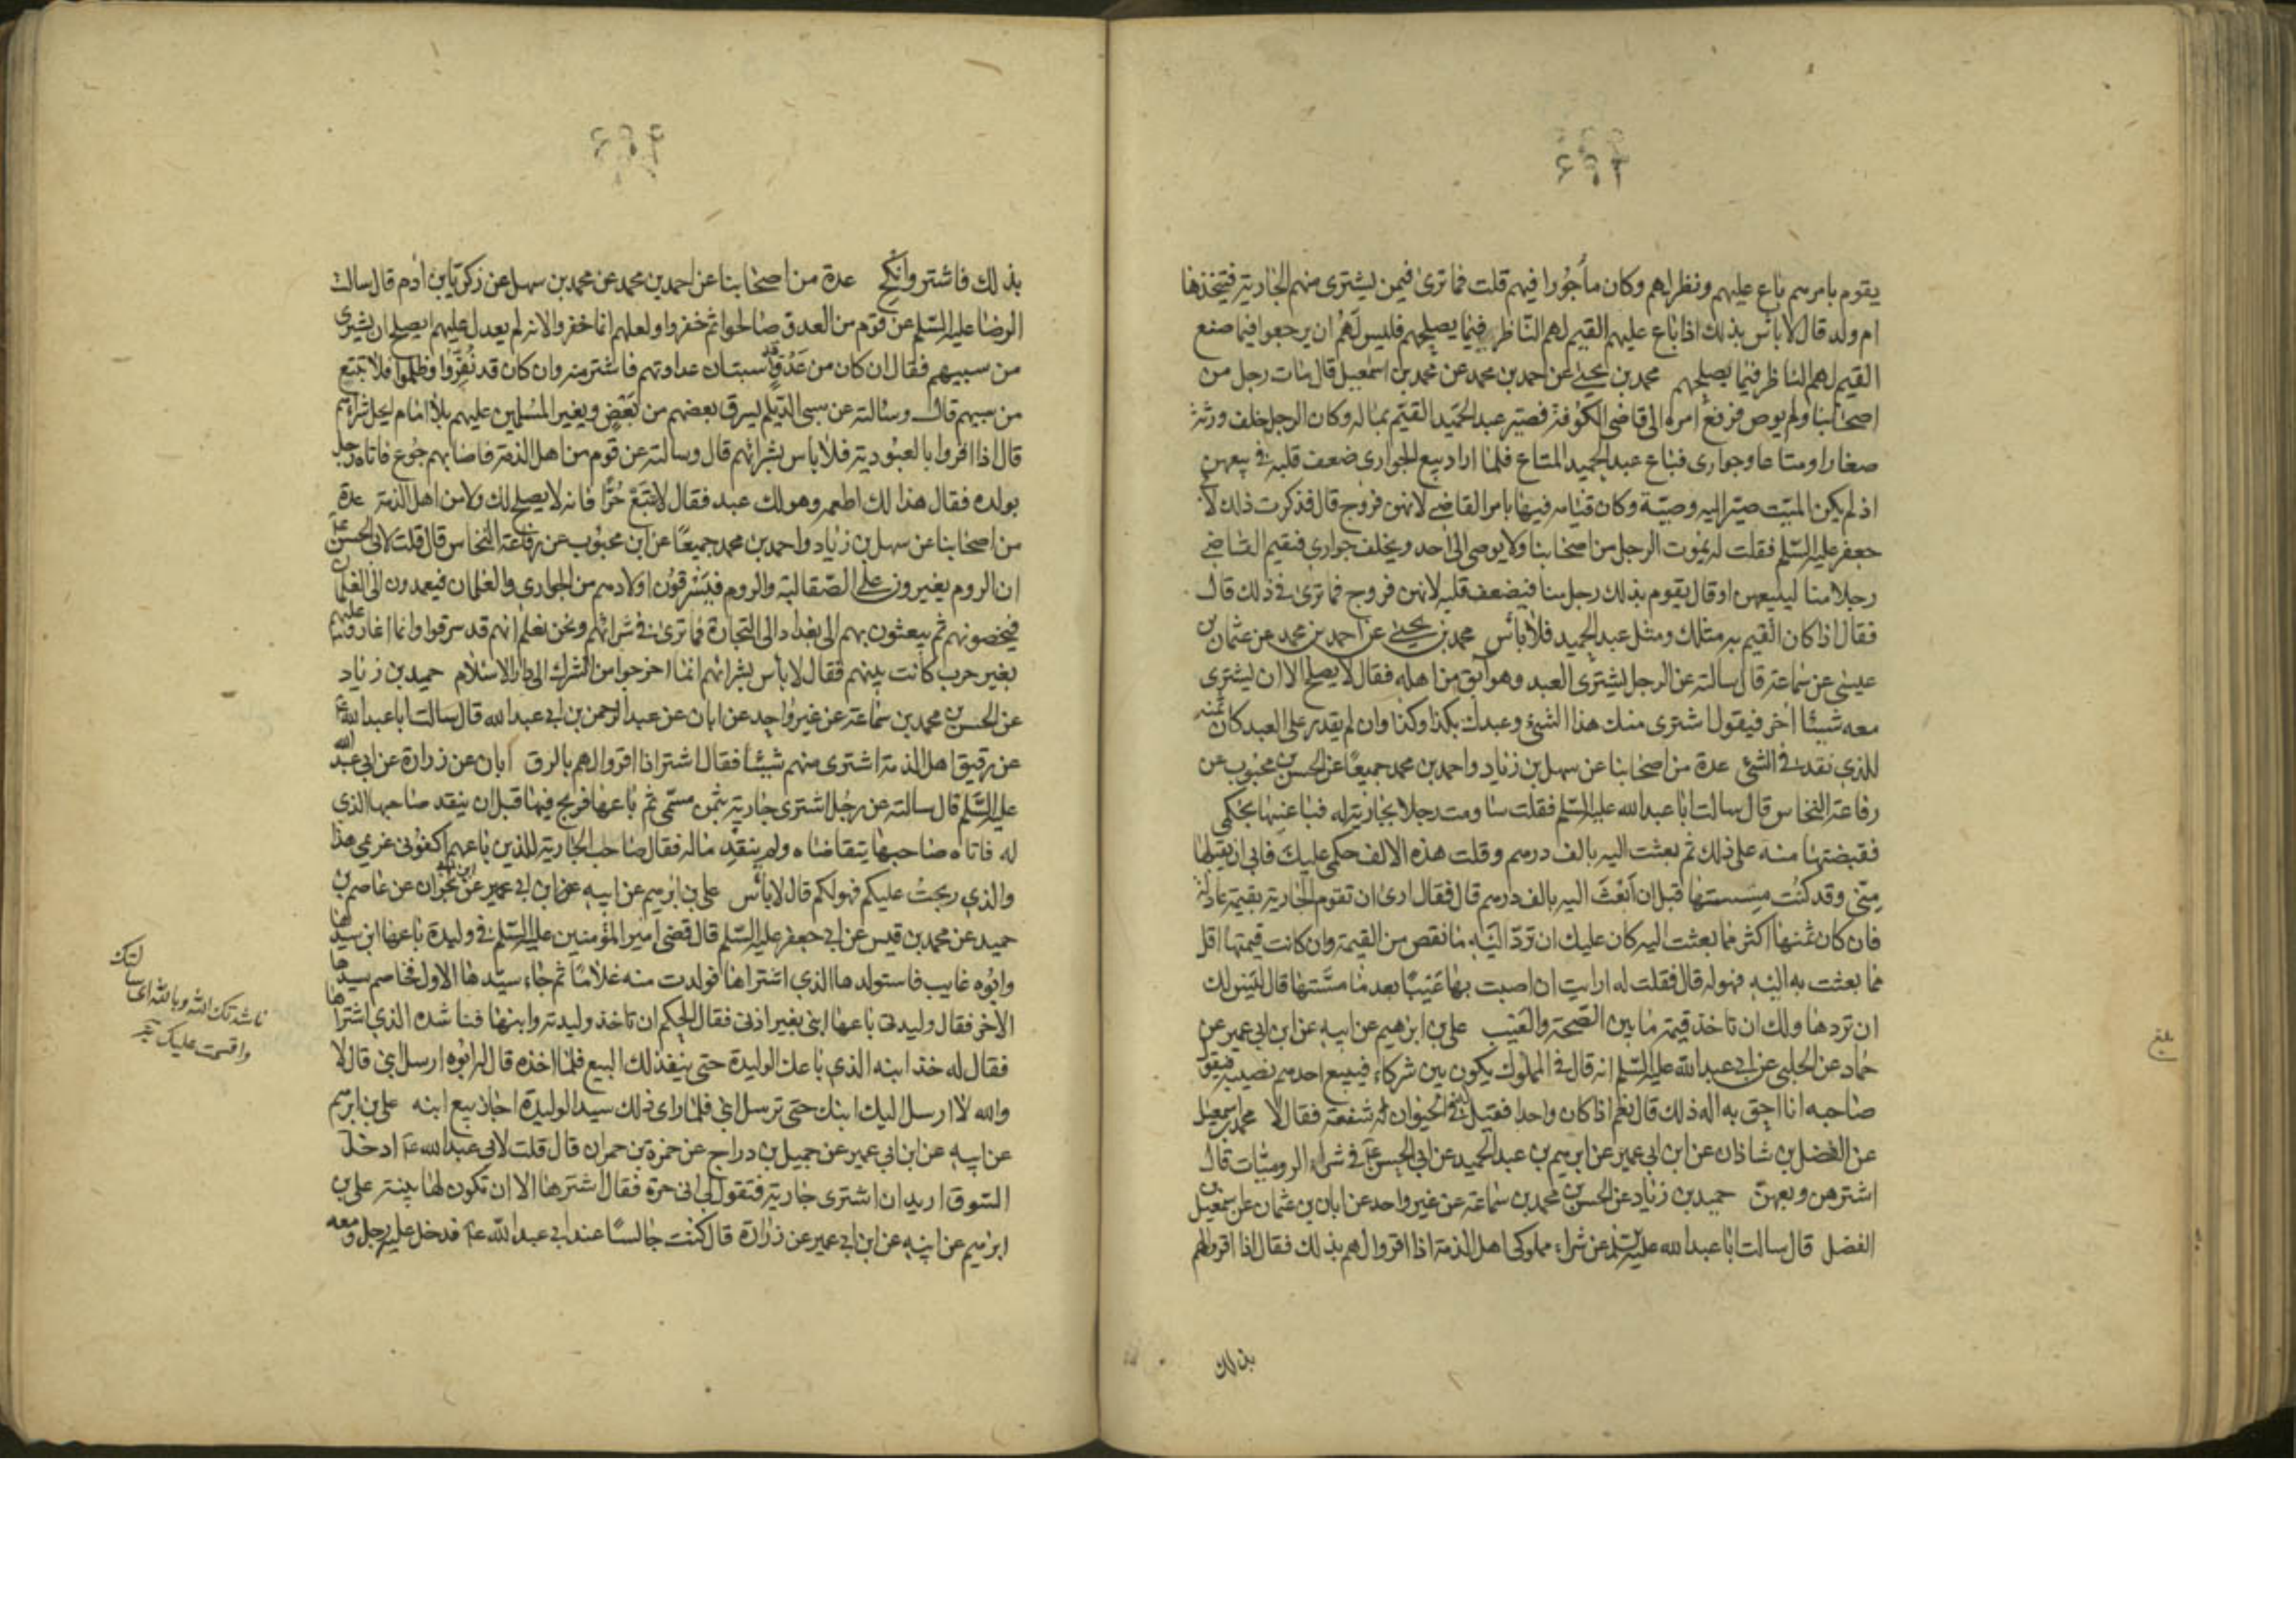 يقوم بامرهم باع عليهم ونظر لهم وكان مأجورا فيهم قلت فما ترى فيمن يشترى منهم الجارية فيتخذها
ام ولد قال لا باس بذلك اذا باع عليهم القيم لهم الناظر فيما يصلحهم فليس لهم ان يرجعوا فيما صنع
القيم لهم الناظر فيما يصلحهم محمد بن يحيى عن احمد بن محمد عن محمد بن اسمعيل قال مات رجل من
اصحابنا ولم يوص فرفع امره الى قاضى الكوفة فصير عبد الحميد القيم بماله وكان الرجل خلف ورثة
صغارا ومتاعا وجوارى فباع عبد الحميد المتاع فلما اراد بيع الجوارى ضعف قلبه فى بيعهن
اذ لم يكن الميت صير اليه وصية وكان قيامه فيها بامر القاضى لانهن فروج قال فذكرت ذلك لابى
جعفر عليه السلم فقلت له يموت الرجل من اصحابنا ولا يوصى الى احد ويخلف جوارى فيقيم القاضى
رجلا منا ليبيعهن او قال يقوم بذلك رجل منا فيضعف قلبه لانهن فروج فما ترى فى ذلك قال
فقال اذا كان القيم به مثلك ومثل عبد الحميد فلا بأس محمد بن يحيى عن احمد بن محمد عن عثمان بن
عيسى عن سماعة قال سالته عن الرجل يشترى العبد وهو آبق من اهله فقال لا يصلح الا ان يشترى
معه شيئا اخر فيقول اشترى منك هذا الشئ وعبدك بكذا وكذا وان لم يقدر على العبد كان ثمنه
للذى نقد فى الشئ عدة من اصحابنا عن سهل بن زياد واحمد بن محمد جميعا عن الحسن بن محبوب عن
رفاعة النخاس قال سالت ابا عبد الله عليه السلم فقلت ساومت رجلا بجارية له فباعنيها بحكمى
فقبضتها منه على ذلك ثم بعثت اليه بالف درهم وقلت هذه الالف حكمى عليك فابى ان يقبلها
منى وقد كنت مسستها قبل ان ابعث اليه بالف درهم قال فقال ارى ان تقوم الجارية بقيمة عادلة
فان كان ثمنها اكثر مما بعثت اليه كان عليك ان ترد اليه ما نقص من القيمة وان كانت قيمتها اقل
مما بعثت به اليه فهو له قال فقلت له ارايت ان اصبت بها عيبا بعد ما مستها قال ليس لك
ان تردها ولك ان تاخذ قيمة ما بين الصحة والعيب على بن ابرهيم عن ابيه عن ابن ابى عمير عن
حماد عن الحلبى عن ابى عبد الله عليه السلم انه قال فى المملوك يكون بين شركاء فيبيع احدهم نصيبه فيقول
صاحبه انا احق به اله ذلك قال نعم اذا كان واحدا فقيل فى الحيوان شفعة فقال لا محمد بن اسمعيل
عن الفضل بن شاذان عن ابن ابى عمير عن ابرهيم بن عبد الحميد عن ابى الحسن ع فى شراء الروميات قال
اشترهن وبعهن حميد بن زياد عن الحسن بن محمد بن سماعة عن غير واحد عن ابان بن عثمان عن اسمعيل بن
الفضل قال سالت ابا عبد الله عليه السلم عن شراء مملوكى اهل الذمة اذا اقروا لهم بذلك فقال اذا اقروا لهم
بذلك
بلغ
بذلك فاشتر وانكح عدة من اصحابنا عن احمد بن محمد عن محمد بن سهل عن زكريا بن آدم قال سالت
الرضا عليه السلم عن قوم من العدو صالحوا ثم خفروا ولعلهم انما خفروا لانه لم يعدل عليهم ايصلح ان يشترى
من سبيهم فقال ان كان من عدو قد استبان عداوتهم فاشتر منه وان كان قد نفروا وظلموا فلا تبتع
من سبيهم قال وسالته عن سبى الديلم يسرق بعضهم من بعض ويغير المسلمين عليهم بلا امام ايحل شراؤهم
قال اذا اقروا بالعبودية فلا باس بشرائهم قال وسالته عن قوم من اهل الذمة فاصابهم جوع فاتاه رجل
بولده فقال هذا لك اطعمه وهو لك عبد فقال لا تبتع حرا فانه لا يصلح لك ولا من اهل الذمة عدة
من اصحابنا عن سهل بن زياد واحمد بن محمد جميعا عن ابن محبوب عن رفاعة النخاس قال قلت لابى الحسن ع
ان الروم يغيرون على الصقالبة والروم فيسرقون اولادهم من الجوارى والغلمان فيعمدون الى الغلمان
فيخصونهم ثم يبعثون بهم الى بغداد الى التجارة فما ترى فى شرائهم ونحن نعلم انهم قد سرقوا وانما اغاروا عليهم
بغير حرب كانت بينهم فقال لا بأس بشرائهم انما اخرجوا من الشرك الى دار الاسلام حميد بن زياد
عن الحسن بن محمد بن سماعة عن غير واحد عن ابان عن عبد الرحمن بن ابى عبد الله قال سالت ابا عبد الله ع
عن رقيق اهل الذمة اشترى منهم شيئا فقال اشتر اذا اقروا لهم بالرق ابان عن زرارة عن ابى عبد الله
عليه السلم قال سالته عن رجل اشترى جارية بثمن مسمى ثم باعها فربح فيها قبل ان ينقد صاحبها الذى
له فاتاه صاحبها يتقاضاه ولم ينقد ماله فقال صاحب الجارية للذين باعهم اكفونى غريمى هذا
والذى ربحت عليكم فهو لكم قال لا بأس على بن ابرهيم عن ابيه عن ابن ابى عمير عن ابن ابى نجران عن عاصم بن
حميد عن محمد بن قيس عن ابى جعفر عليه السلم قال قضى امير المؤمنين عليه السلم فى وليدة باعها ابن سيدها
وابوه غايب فاستولدها الذى اشتراها فولدت منه غلاما ثم جاء سيدها الاول فخاصم سيدها
الاخر فقال وليدتى باعها ابنى بغير اذنى فقال الحكم ان تاخذ وليدته وابنها فناشده الذى اشتراها
فقال له خذ ابنه الذى باعك الوليدة حتى ينفذ لك البيع فلما اخذه قال له ابوه ارسل ابنى قال لا
والله لا ارسل اليك ابنك حتى ترسل ابنى فلما راى ذلك سيد الوليدة اجاز بيع ابنه على بن ابرهيم
عن ابيه عن ابن ابى عمير عن جميل بن دراج عن حمزة بن حمران قال قلت لابى عبد الله ع ادخل
السوق اريد ان اشترى جارية فتقول لى انى حرة فقال اشترها الا ان تكون لها بينة على بن
ابرهيم عن ابيه عن ابن ابى عمير عن زرارة قال كنت جالسا عند ابى عبد الله ع فدخل عليه رجل ومعه
ناشدتك الله وبالله اى سالتك
واقسمت عليك